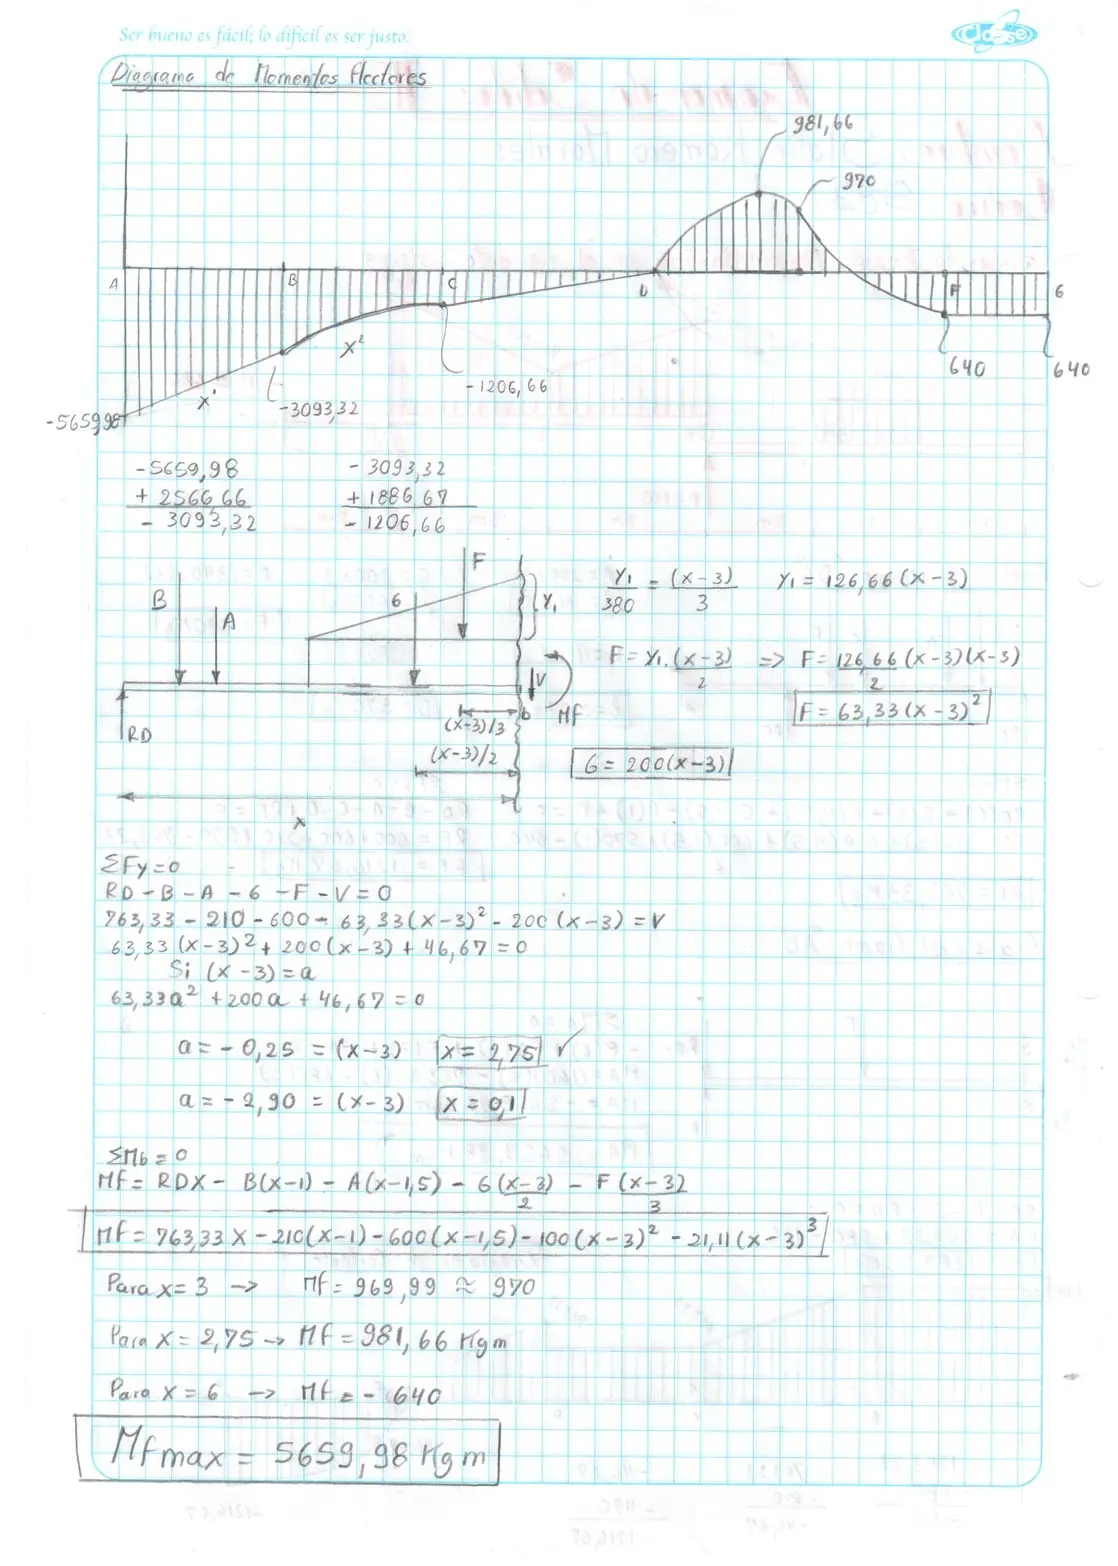 Ser bueno es fácil; lo difícil es ser justo.
Clase
Diagrama de Momentos flectores
981,66
970
A
B
C
D
F
6
X¹
X²
-5659,98
-3093,32
-1206,66
640
640
-5659,98
+ 2566,66
- 3093,32
- 3093,32
+ 1886,67
- 1206,66
B
A
6
F
Y₁
V
b
Mf
RD
(x-3)/3
(x-3)/2
x
Y₁/380 = (x-3)/3
Y₁ = 126,66(x-3)
F = Y₁.(x-3)/2 => F = 126,66(x-3)(x-3)/2
F = 63,33(x-3)²
6 = 200(x-3)
ΣFy=0
RD-B-A-6-F-V=0
763,33-210-600-63,33(x-3)²-200(x-3)=V
63,33(x-3)²+200(x-3)+46,67=0
Si (x-3)=a
63,33a²+200a+46,67=0
a=-0,25=(x-3) x=2,75 ✓
a=-2,90=(x-3) x=0,1
ΣMb=0
Mf=RDX-B(x-1)-A(x-1,5)-6(x-3)/2-F(x-3)/3
Mf=763,33x-210(x-1)-600(x-1,5)-100(x-3)²-21,11(x-3)³
Para x=3 -> Mf=969,99≈970
Para x=2,75 -> Mf=981,66 Kgm
Para x=6 -> Mf=-640
Mfmax = 5659,98 Kgm